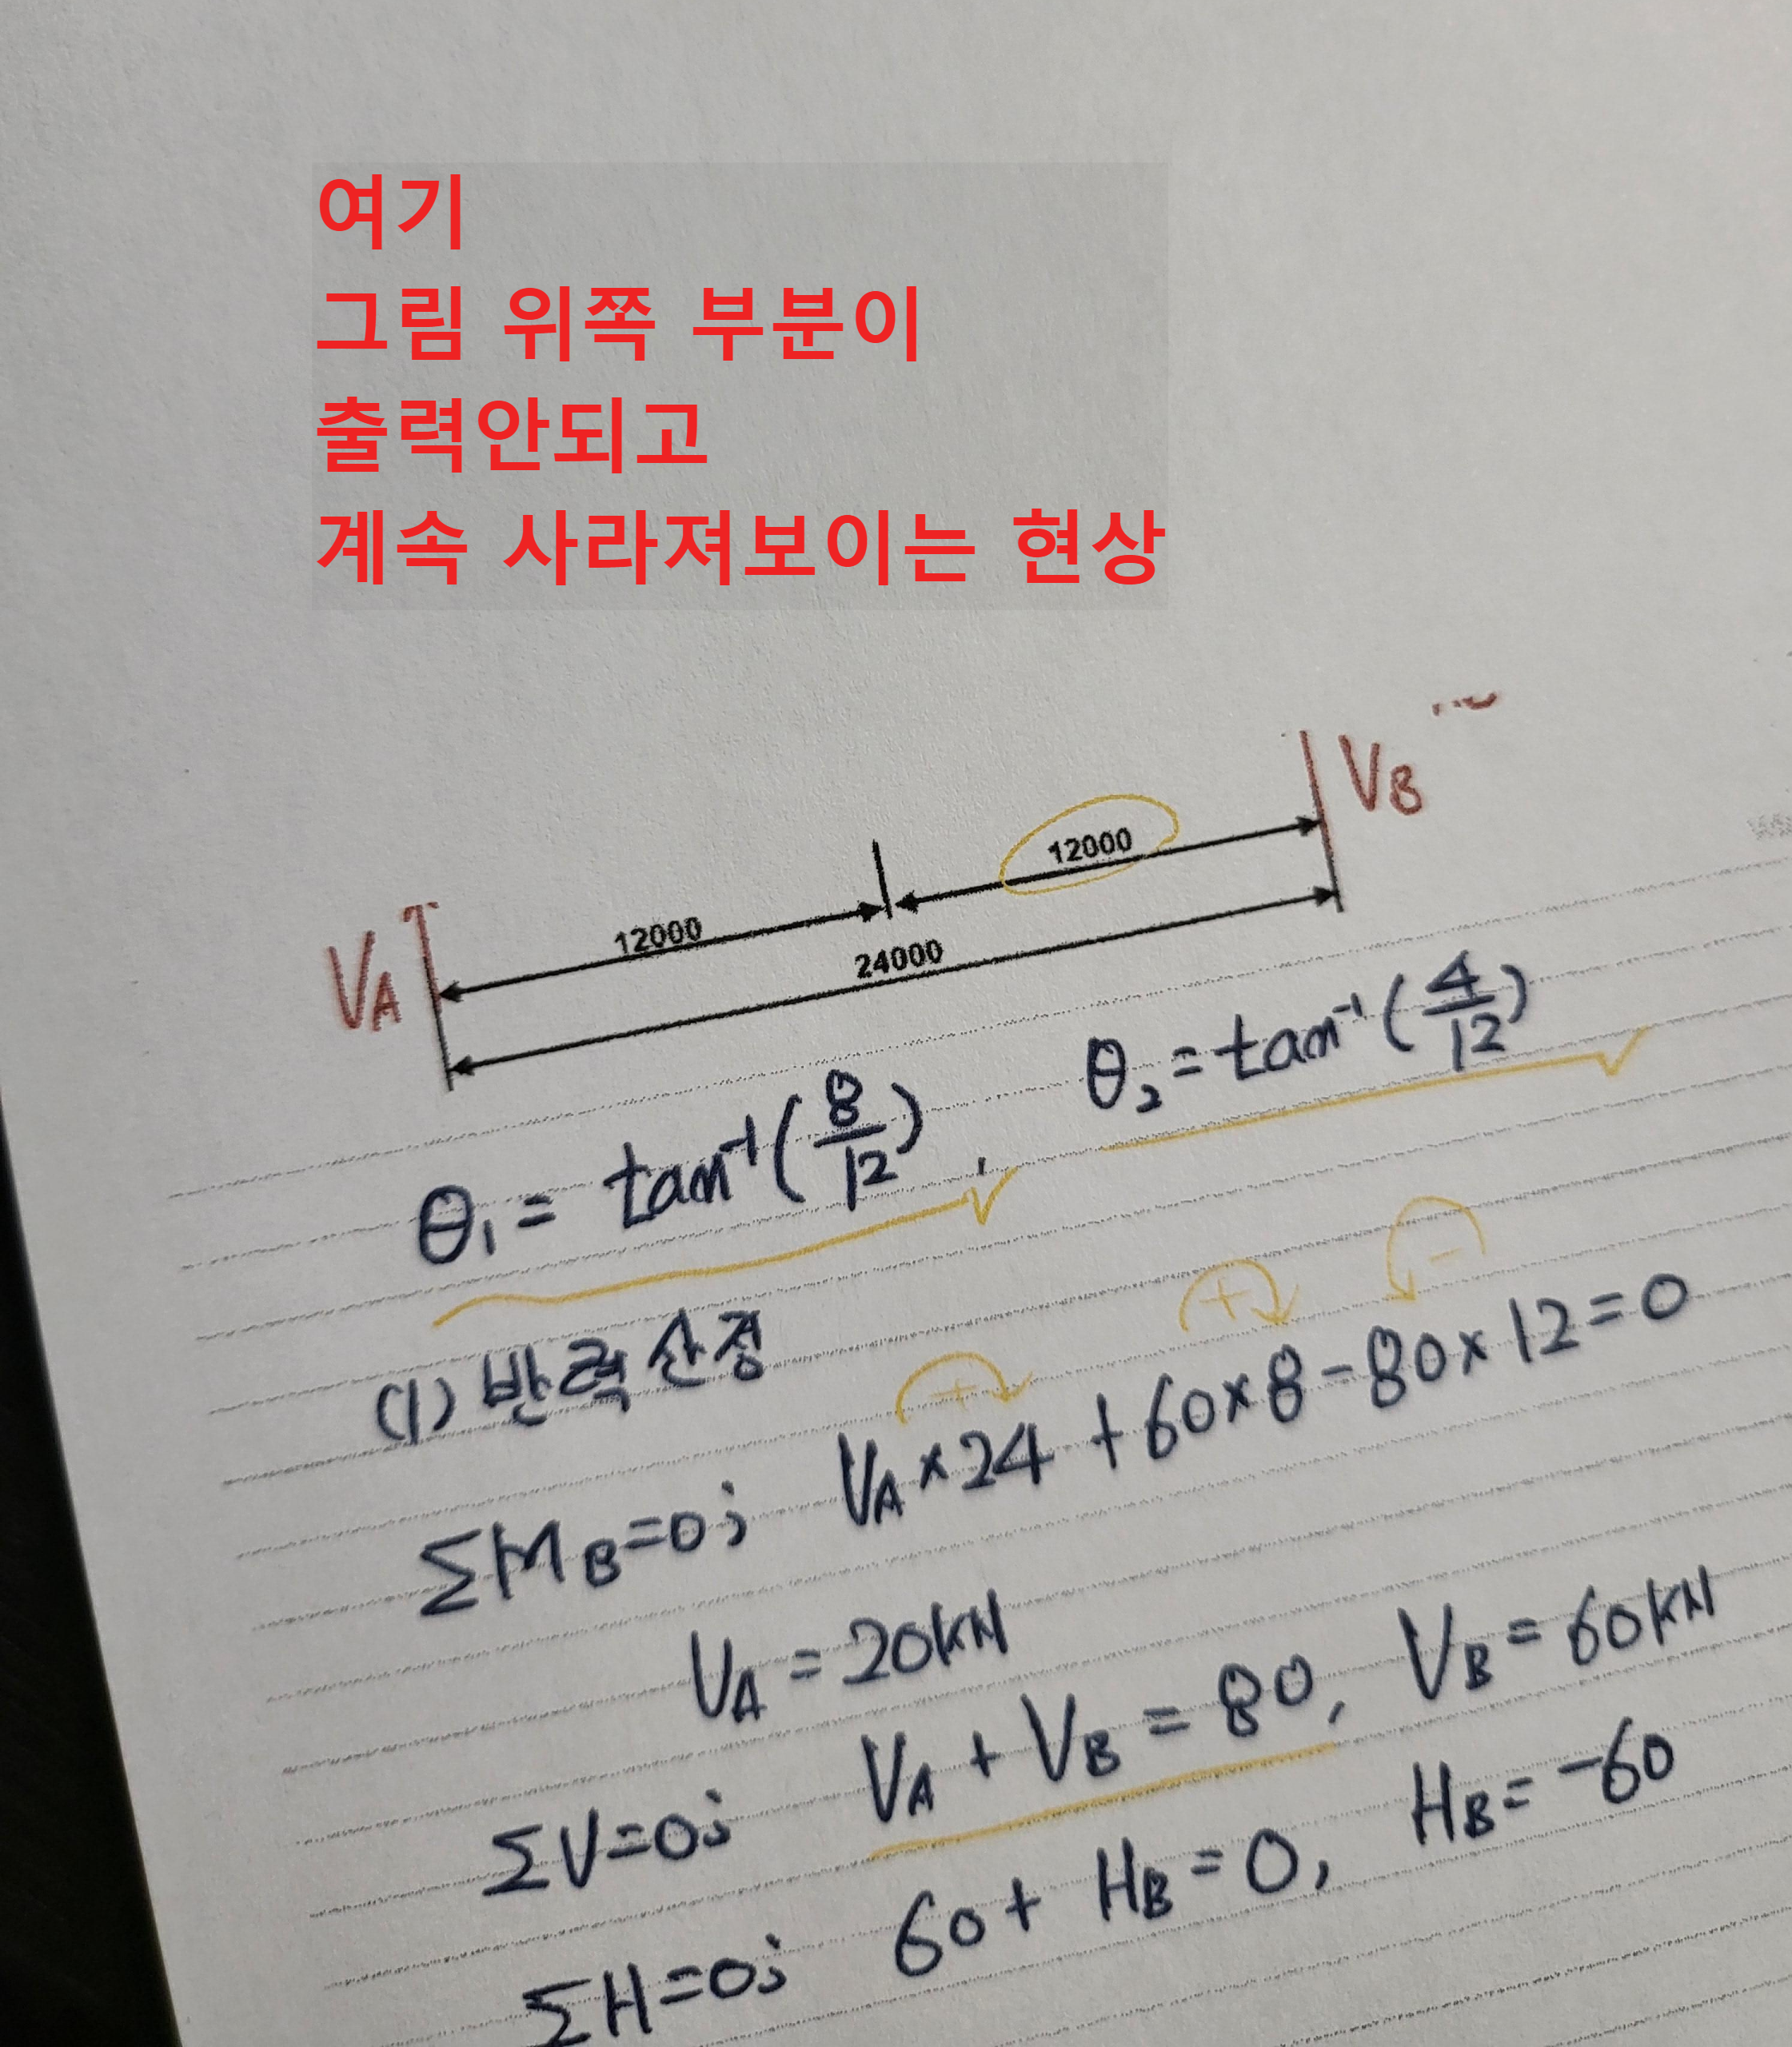 여기
그림 위쪽 부분이
출력안되고
계속 사라져보이는 현상
VB
12000
12000
VA
24000
θ₁ = tan⁻¹(8/12), θ₂ = tan⁻¹(4/12)
(1) 반력 산정
+ + -
ΣMB=0; VA×24+60×8-80×12=0
VA=20kN
ΣV=0; VA+VB=80, VB=60kN
ΣH=0; 60+HB=0, HB=-60